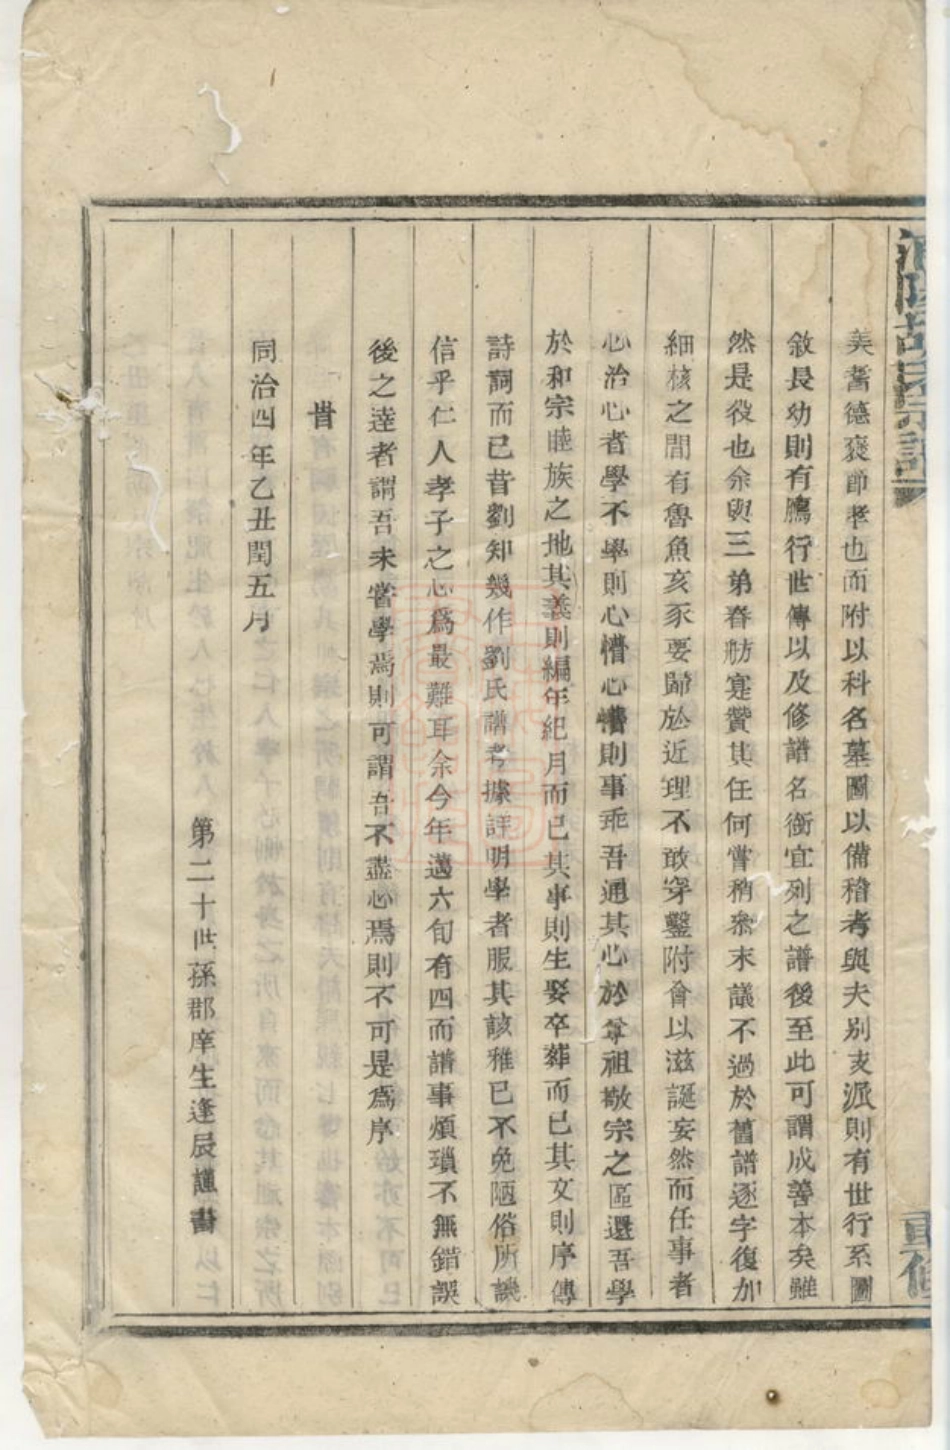 美耆德褒節孝也而附以科名墓圖以備稽考與夫別支派則有世行系圖
敘長幼則有鴈行世傳以及修譜名銜宜列之譜後至此可謂成善本矣雖
然是役也余與三弟春舫寔贊其任何嘗稍叅末議不過於舊譜逐字復加
細核之間有魯魚亥豕要歸於近理不敢穿鑿附會以滋誕妄然而任事者
心治心者學不學則心懵心懵則事乖吾通其心於尊祖敬宗之區還吾學
於和宗睦族之地其義則編年紀月而已其事則生娶卒葬而已其文則序傳
詩詞而已昔劉知幾作劉氏譜考據詳明學者服其該雅已不免陋俗所譏
信乎仁人孝子之心爲最難耳余今年邁六旬有四而譜事煩瑣不無錯誤
後之達者謂吾未嘗學焉則可謂吾不盡心焉則不可是爲序
旹
同治四年乙丑閏五月
第二十世孫郡庠生逢辰謹書
胡氏宗譜
重修